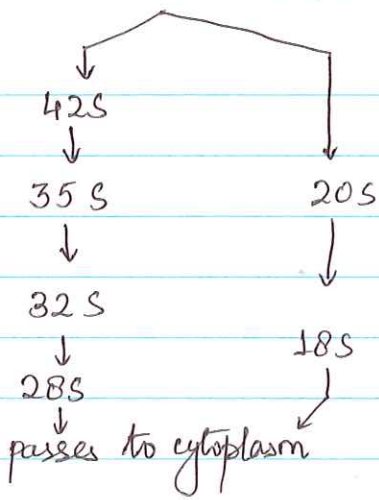 42S
35 S 20S
32 S
18S
28S
passes to cytoplasm